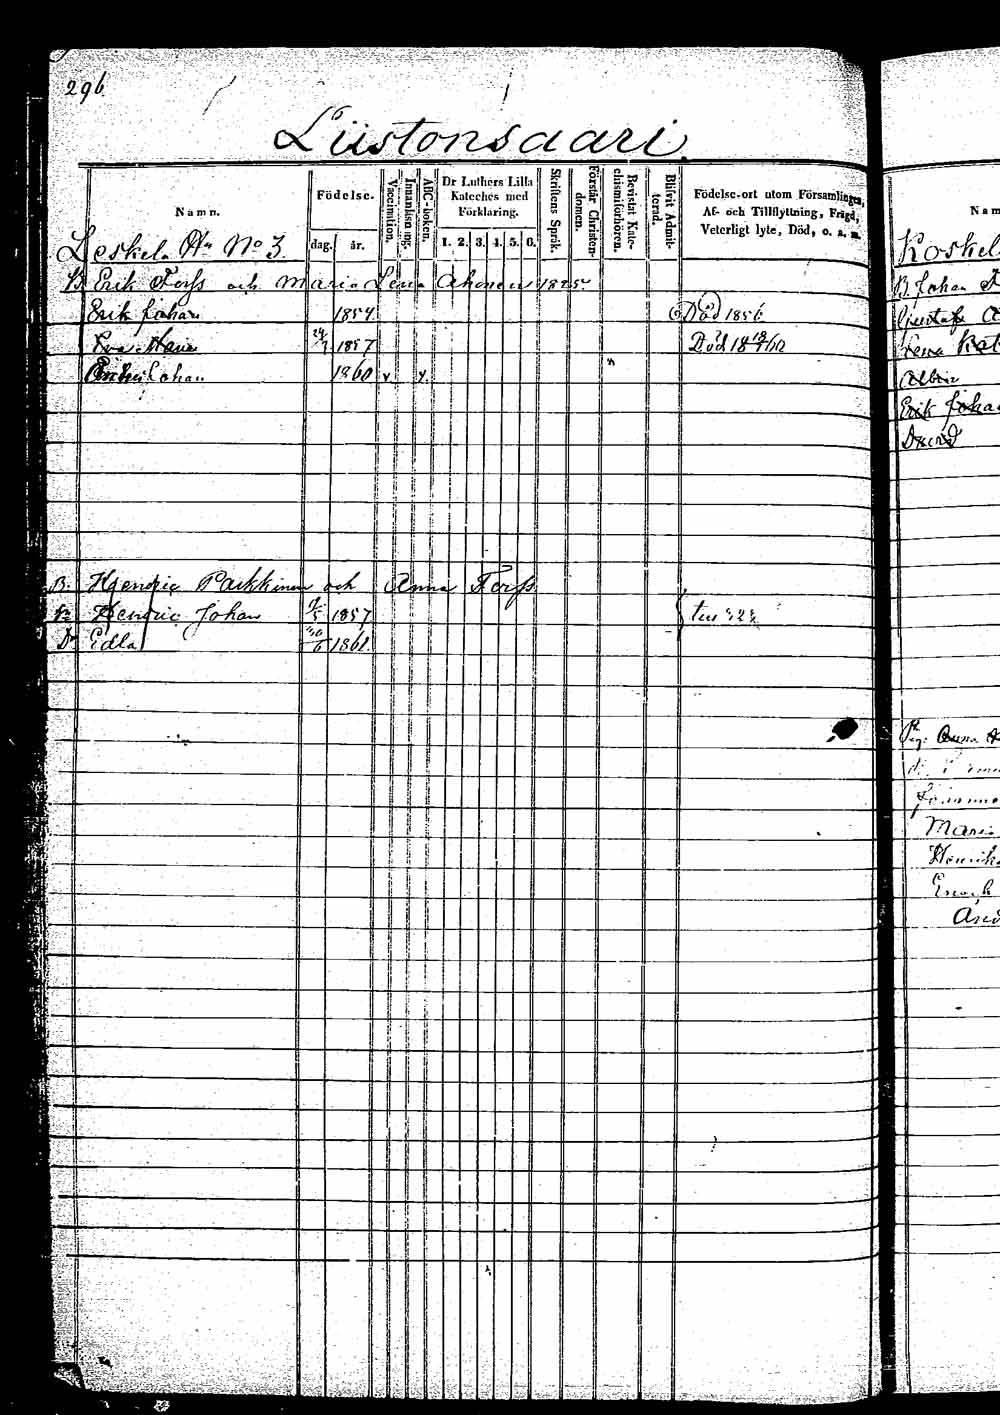 296
Liistonsaari.
Namn.
Födelse.
dag. år.
Vaccination.
Innanläsning.
ABC-boken.
Dr Luthers Lilla
Kateches med
Förklaring.
1. 2. 3. 4. 5. 6.
Skriftens Språk.
Förstår Christen-
domen.
Bevistat Kate-
chismiförhören.
Blifvit Admit-
terad.
Födelse-ort utom Församlingen,
Af- och Tillflyttning, Frägd,
Veterligt lyte, Död, o. s. m.
Leskel. Hn No 3.
B. Erik Forss och Maria Lena Ahonen 1825
Erik Johan 1854 Död 1856
Eva Maria 1857 Död 18 60
Johan 1860 v v
B. Hendric Parkkinen och Anna Forss
Hendric Johan 1857
Dr Edla 1861.
Koskel
B. Johan
Gustaf
Lena Kat
Albin
Erik Johan
David
Anna
Maria
Henrik
Enoch
And